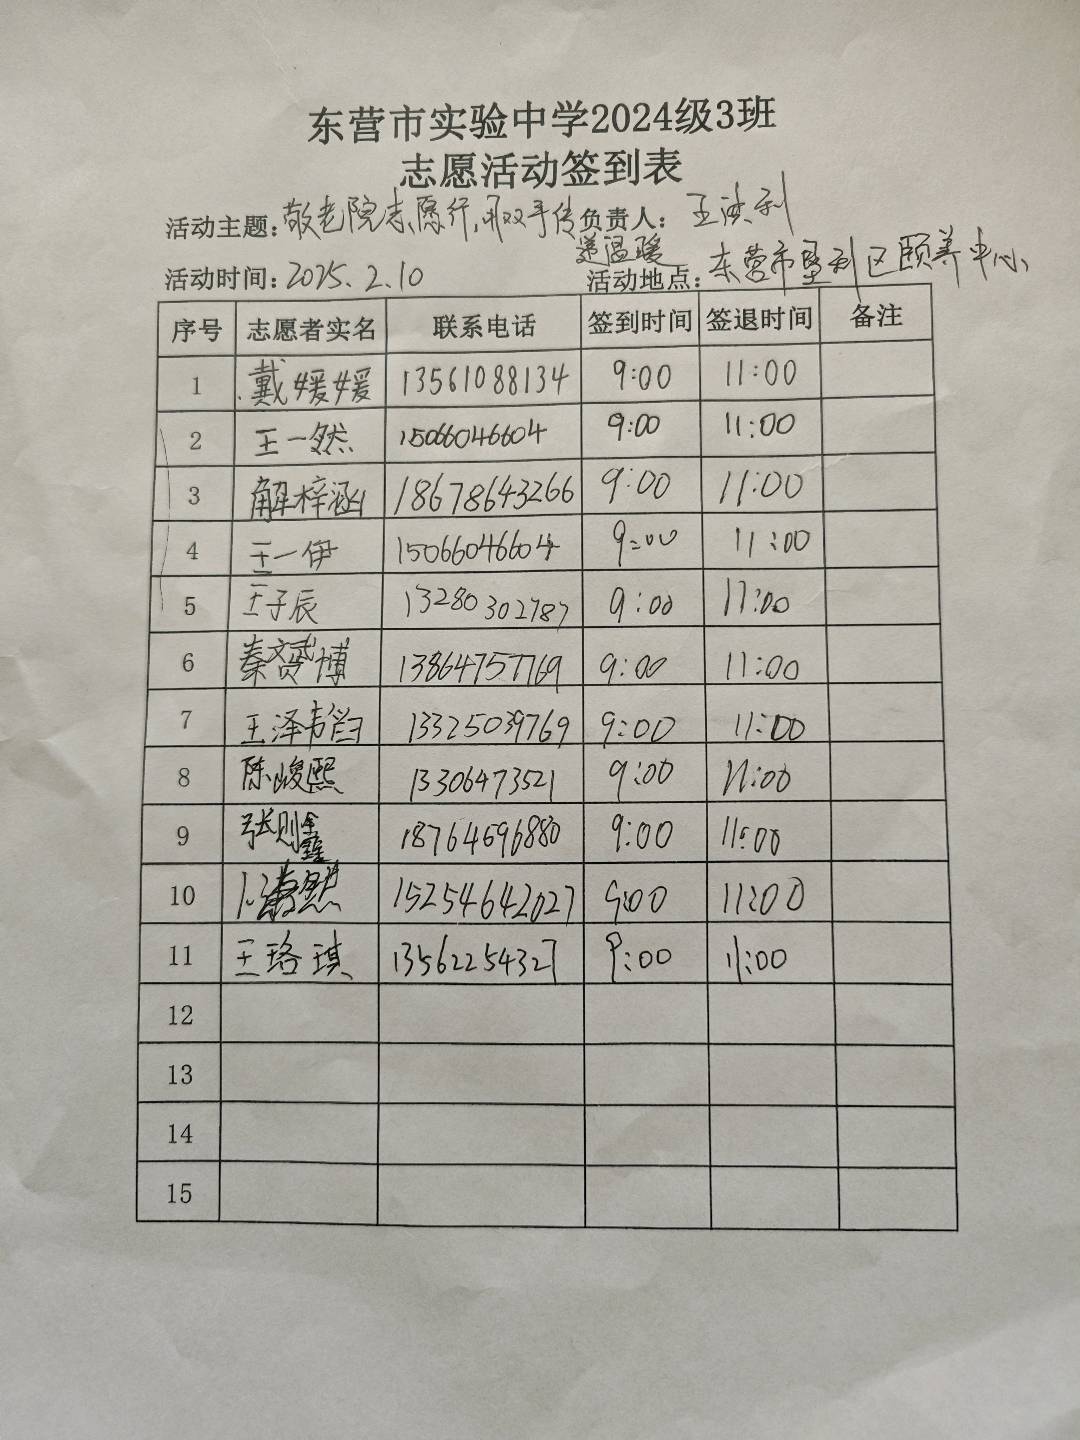 东营市实验中学2024级3班
志愿活动签到表
活动主题：敬老院志愿行，用双手传递温暖 负责人：王洪利
活动时间：2025.2.10 活动地点：东营市垦利区颐养中心
序号 志愿者实名 联系电话 签到时间 签退时间 备注
1 戴媛媛 13561088134 9:00 11:00
2 王一然 15066046604 9:00 11:00
3 解梓涵 18678643266 9:00 11:00
4 王一伊 15066046604 9:00 11:00
5 王子辰 13280302787 9:00 11:00
6 秦赟博 13864757769 9:00 11:00
7 王泽 13325039769 9:00 11:00
8 陈峻熙 13306473521 9:00 11:00
9 张则鑫 18764696880 9:00 11:00
10 15254642027 9:00 11:00
11 王珞琪 13562254327 9:00 11:00
12
13
14
15